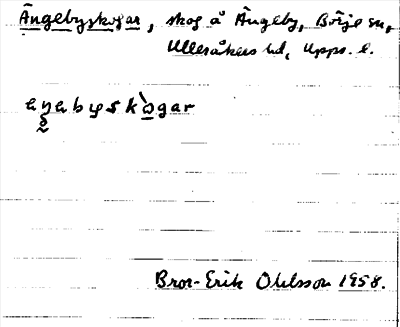 Ängebyskogar, skog å Ängeby, Börje sn,
Ulleråkers hd, Upps. l.
aŋabyskògar
Bror-Erik Ohlsson 1958.